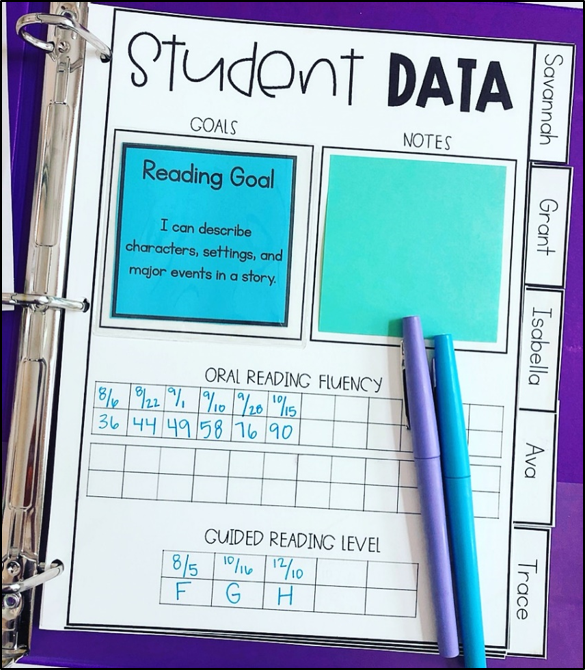 Student DATA
GOALS
NOTES
Reading Goal
I can describe
characters, settings, and
major events in a story.
ORAL READING FLUENCY
8/6 8/22 9/1 9/10 9/20 10/15
36 44 49 58 76 90
GUIDED READING LEVEL
8/5 10/16 12/10
F G H
Savannah
Grant
Isabella
Ava
Trace